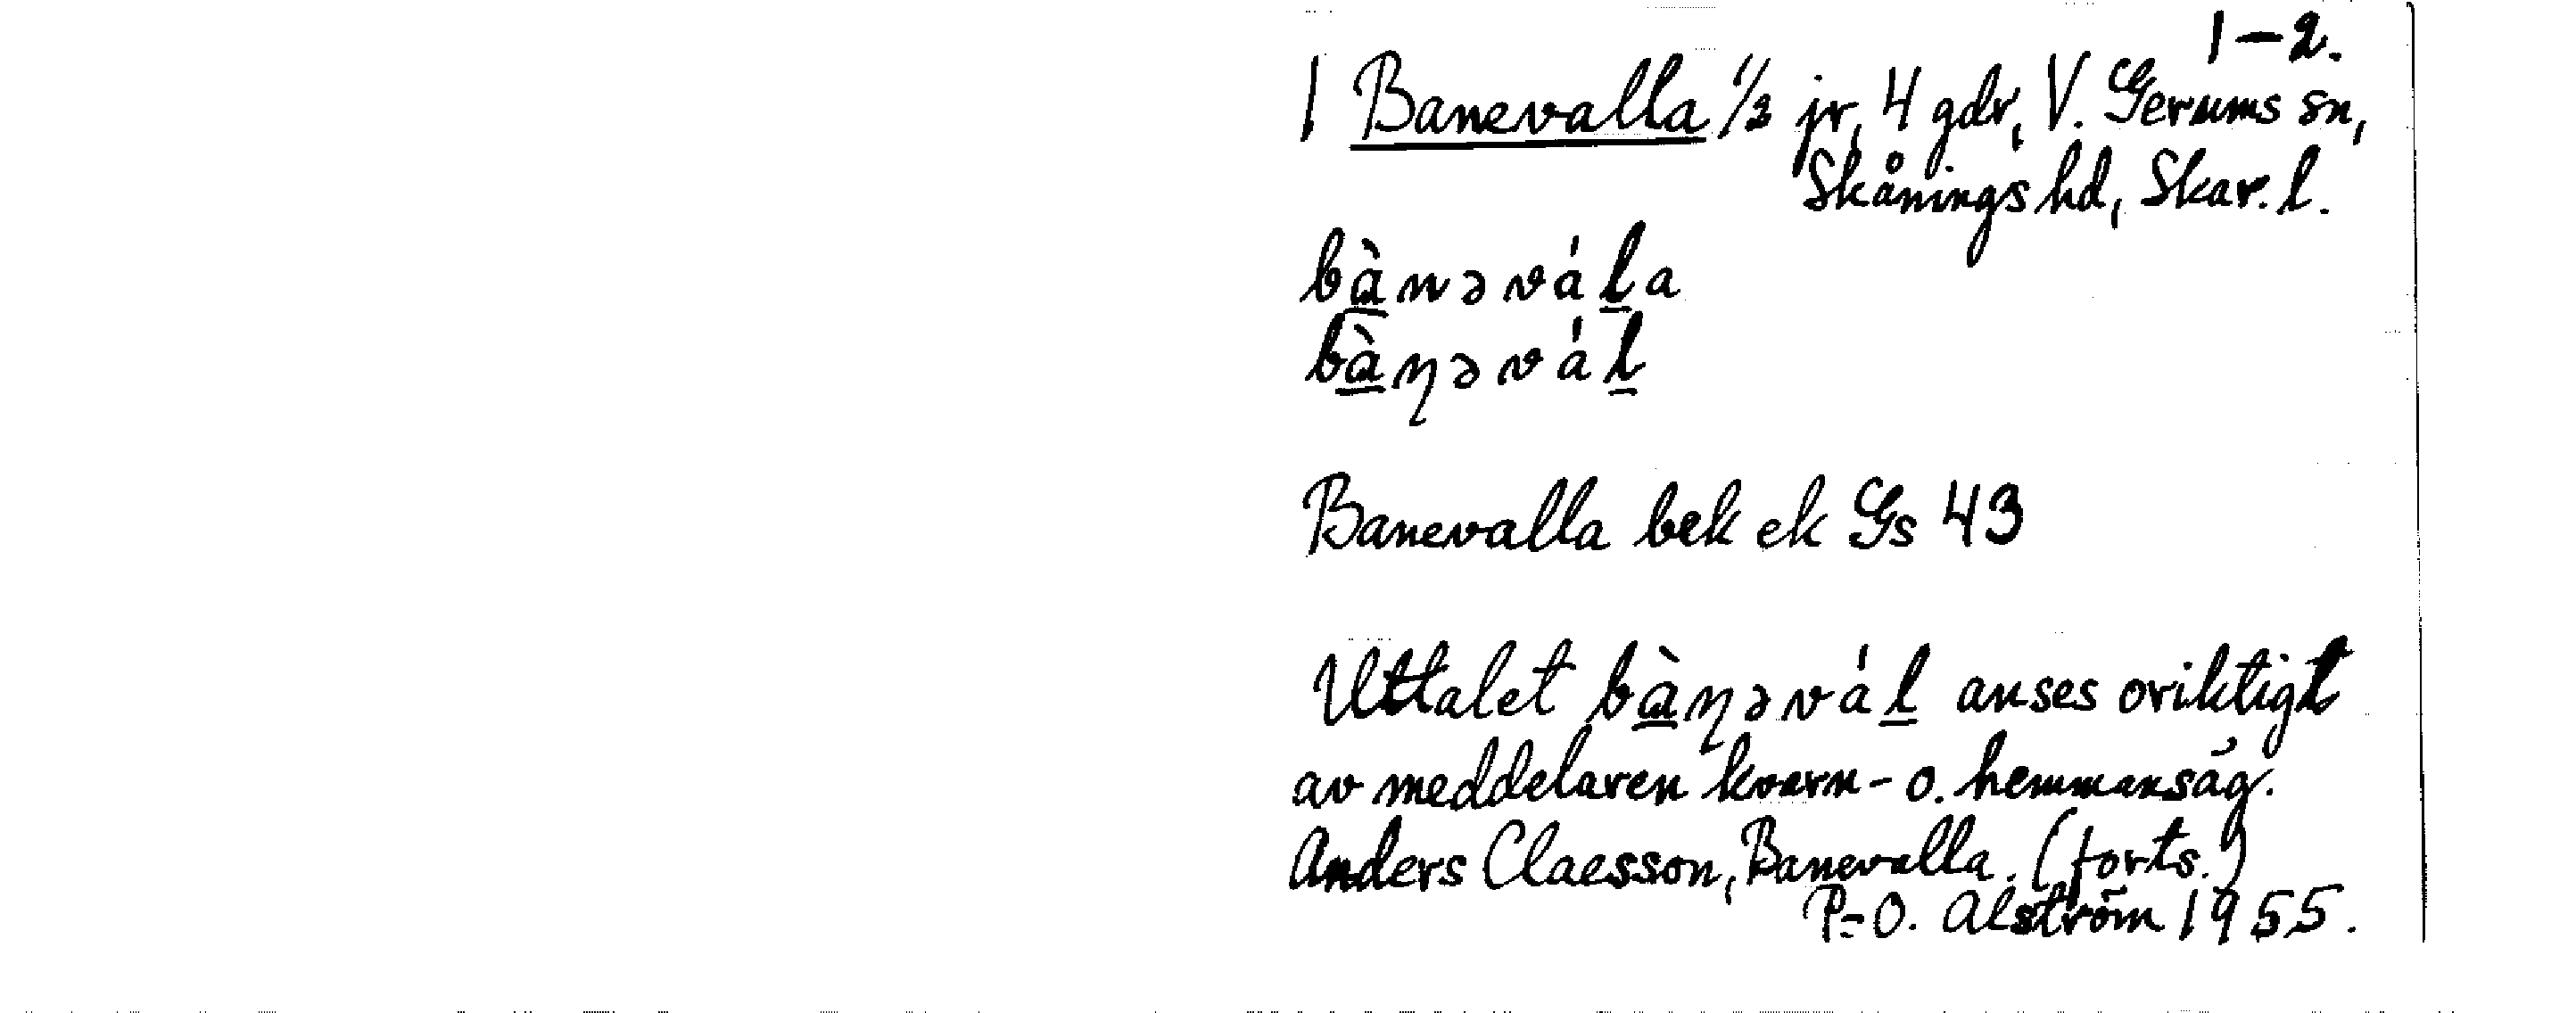 1-2.
1 Banevalla 1/2 jr, 4 gdr, V. Gerums sn,
Skånings hd, Skar. l.
bànəváḻa
bàŋəváḻ
Banevalla bek ek Gs 43
Uttalet bàŋəváḻ anses oriktigt
av meddelaren kvarn- o. hemmansäg.
Anders Claesson, Banevalla. (forts.)
P-O. Alström 1955.